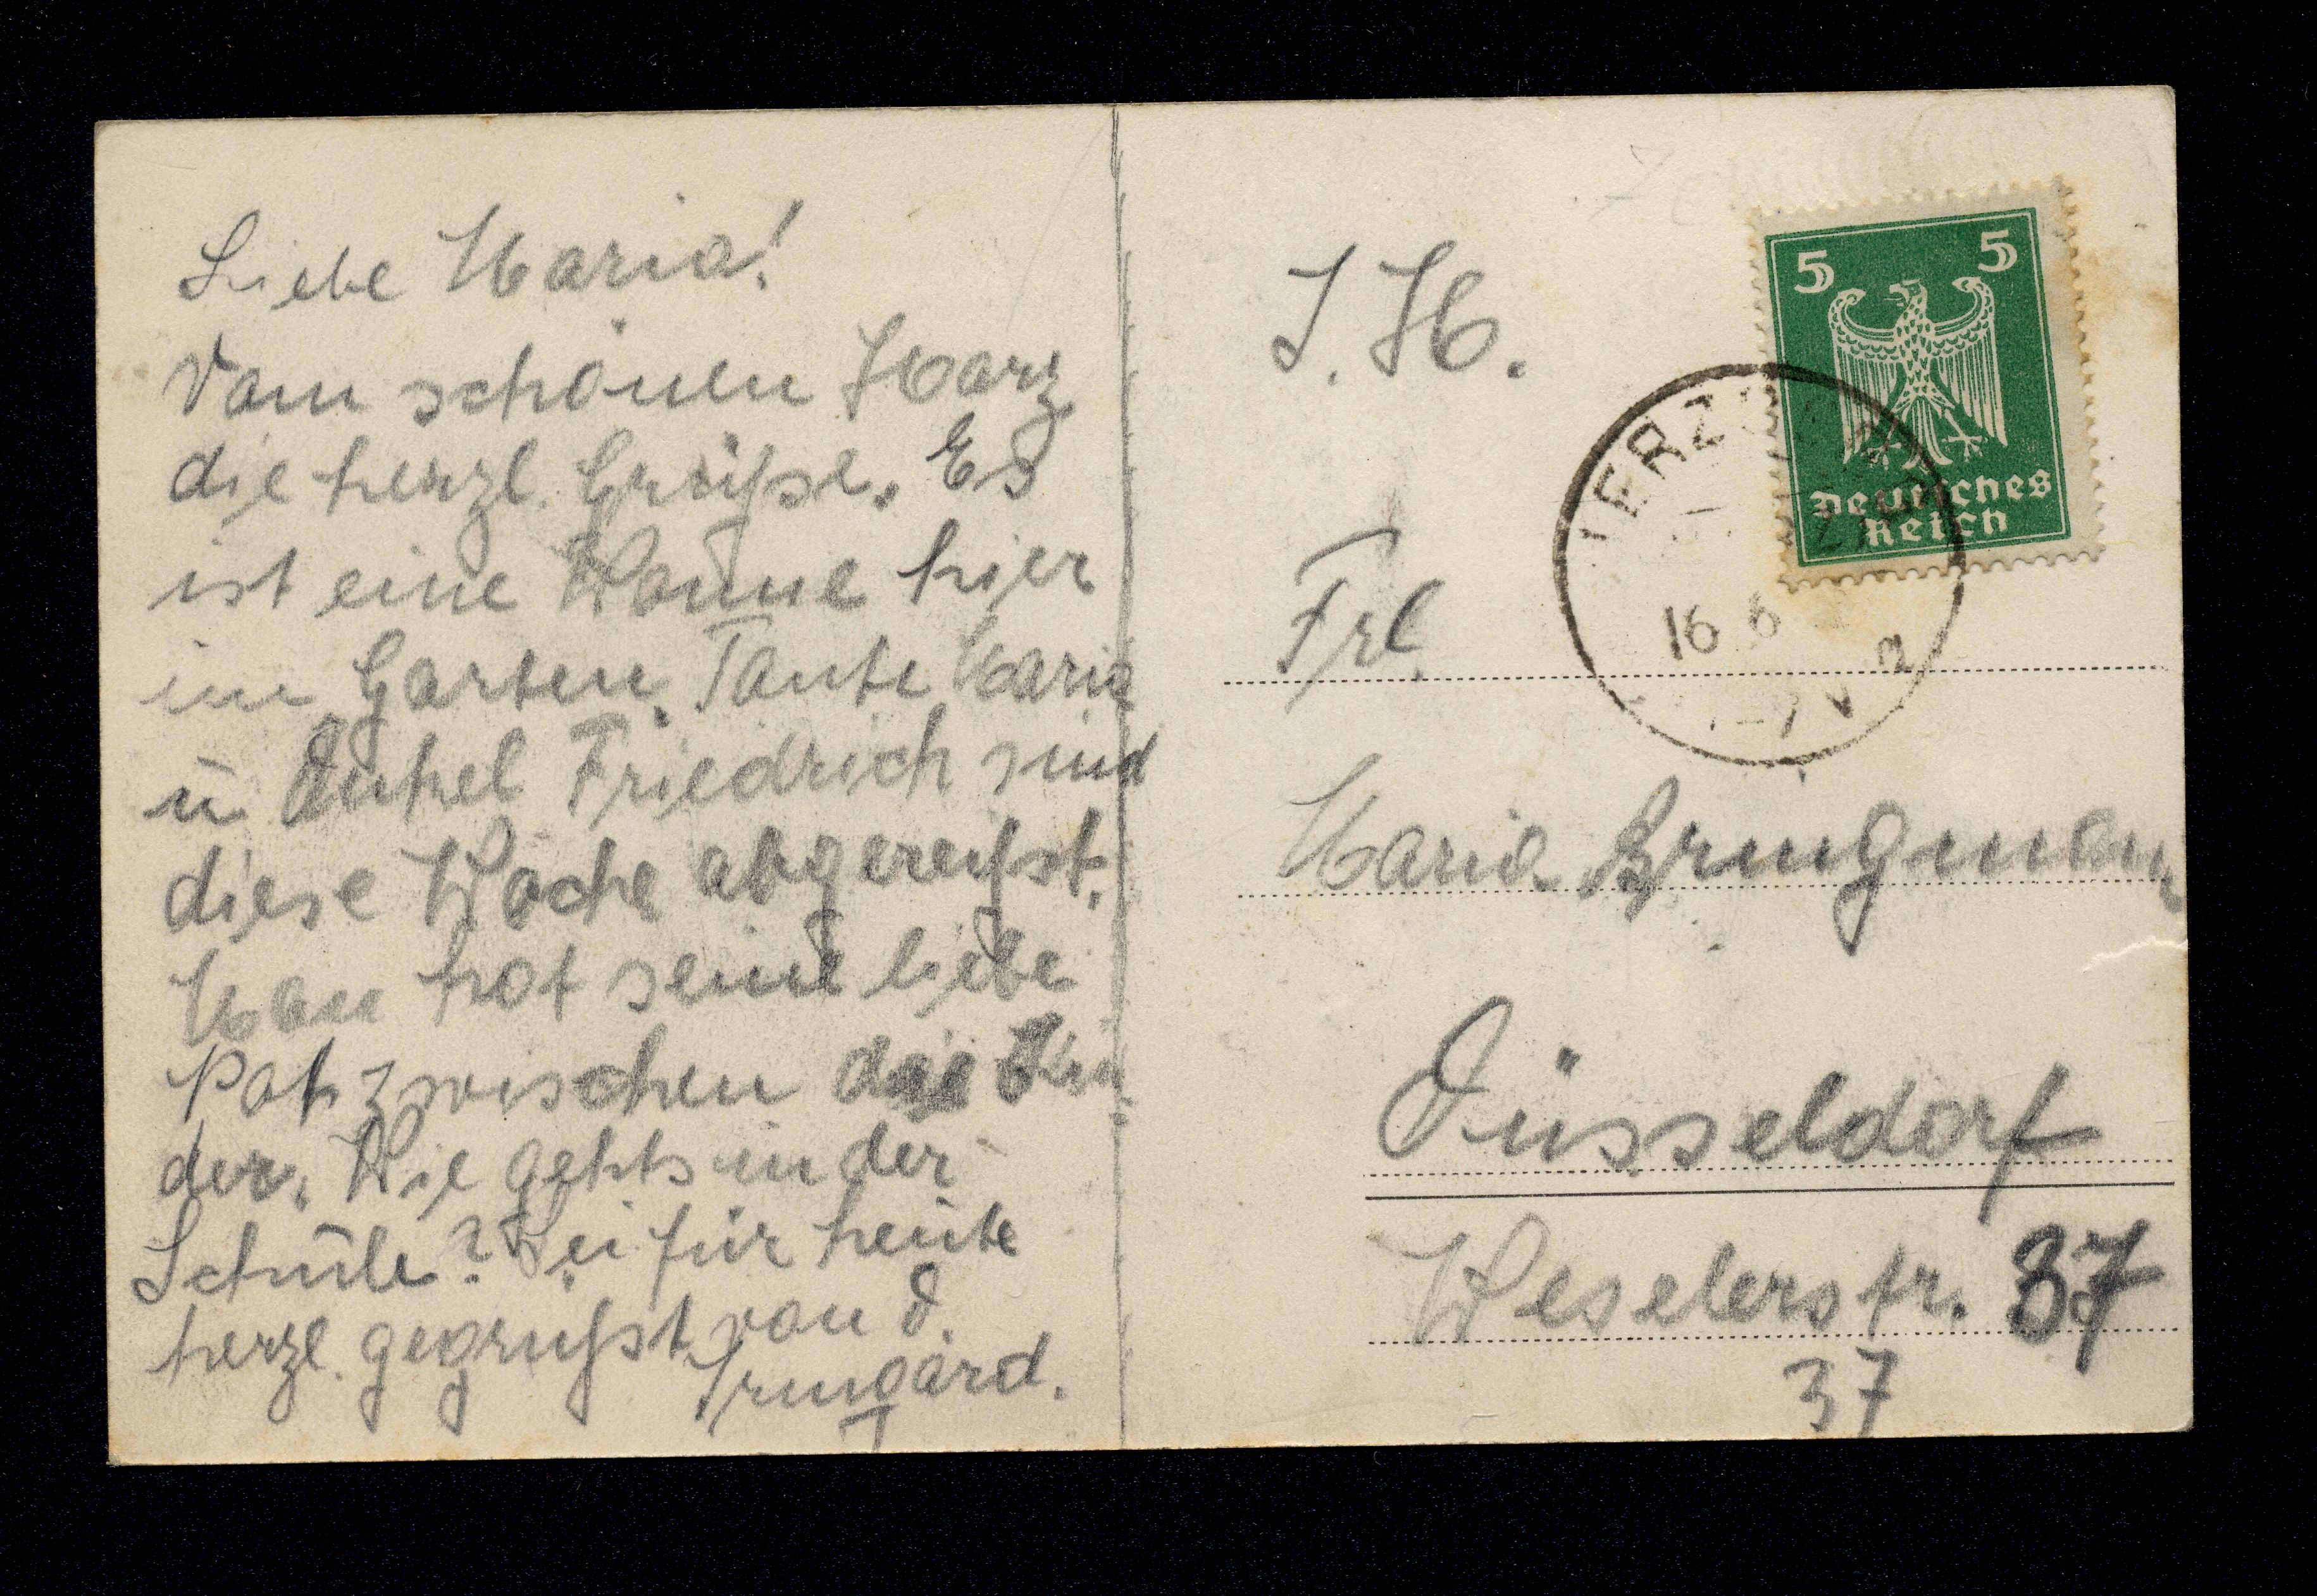 Liebe Maria!
Vom schönen Harz
die herzl. Grüße. Es
ist eine Wonne hier
im Garten. Tante Maria
u. Onkel Friedrich sind
diese Woche abgereißt.
Man hat seine liebe
Not zwischen die Kin-
der. Wie gehts in der
Schule? Sei für heute
herzl. gegrüßt von d.
Irmgard.
I. H.
5 5
Deutsches
Reich
16 6
Frl.
Maria
Düsseldorf
Weselerstr. 37
37